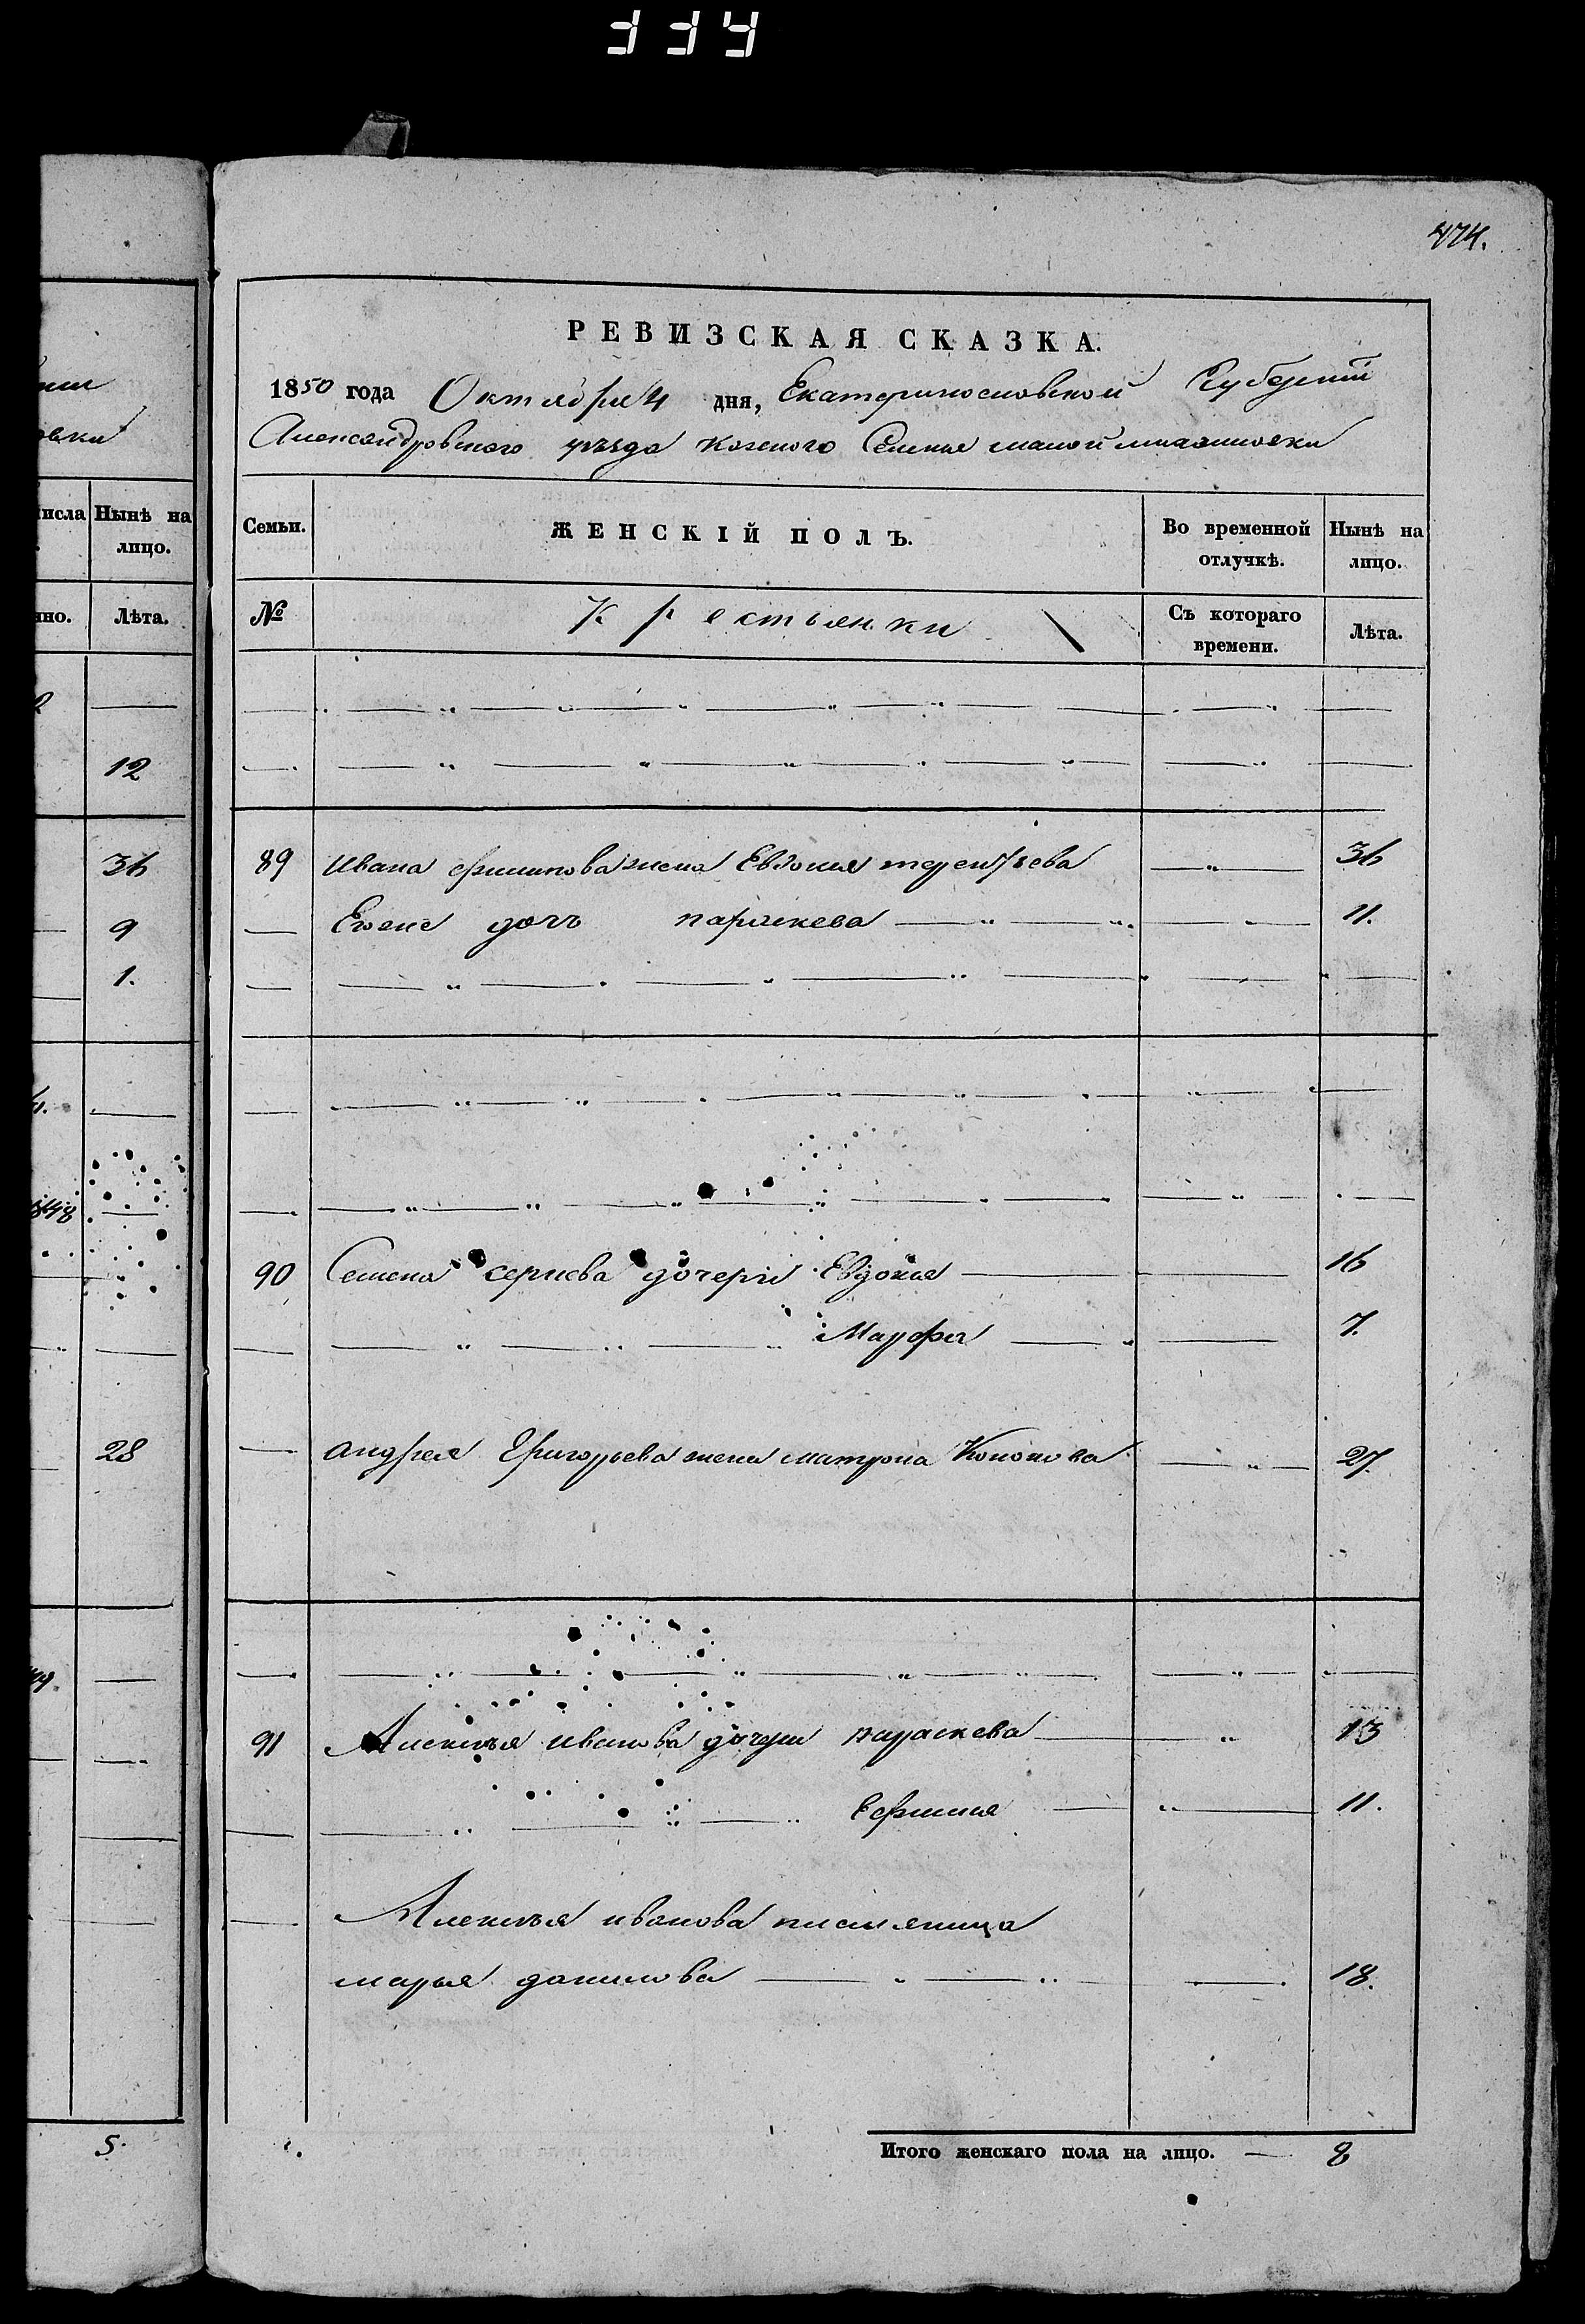 334
474.
РЕВИЗСКАЯ СКАЗКА.
1850 года Октября 4 дня, Екатеринославской Губернии
Александровского уѣзда казеного Селенья малой михайловки
исла Ныне на лицо.
Семьи. ЖЕНСКІЙ ПОЛЪ. Во временной отлучкѣ. Нынѣ на лицо.
нно. Лѣта.
№ Крестьянки Съ котораго времени. Лѣта.
12
36
89 Ивана ефимова жена Евдокия терентьева 36
9
Его дочь параскева 11.
1.
1848
90 Семена сергиева дочери Евдокия 16
Марфа 7.
28
андрея Григорьева жена матрона Кононова 27.
91 Алексѣя иванова дочери параскева 13
Ефимия 11.
Алексѣя иванова племяница
марья данилова 18.
5.
Итого женскаго пола на лицо. — 8